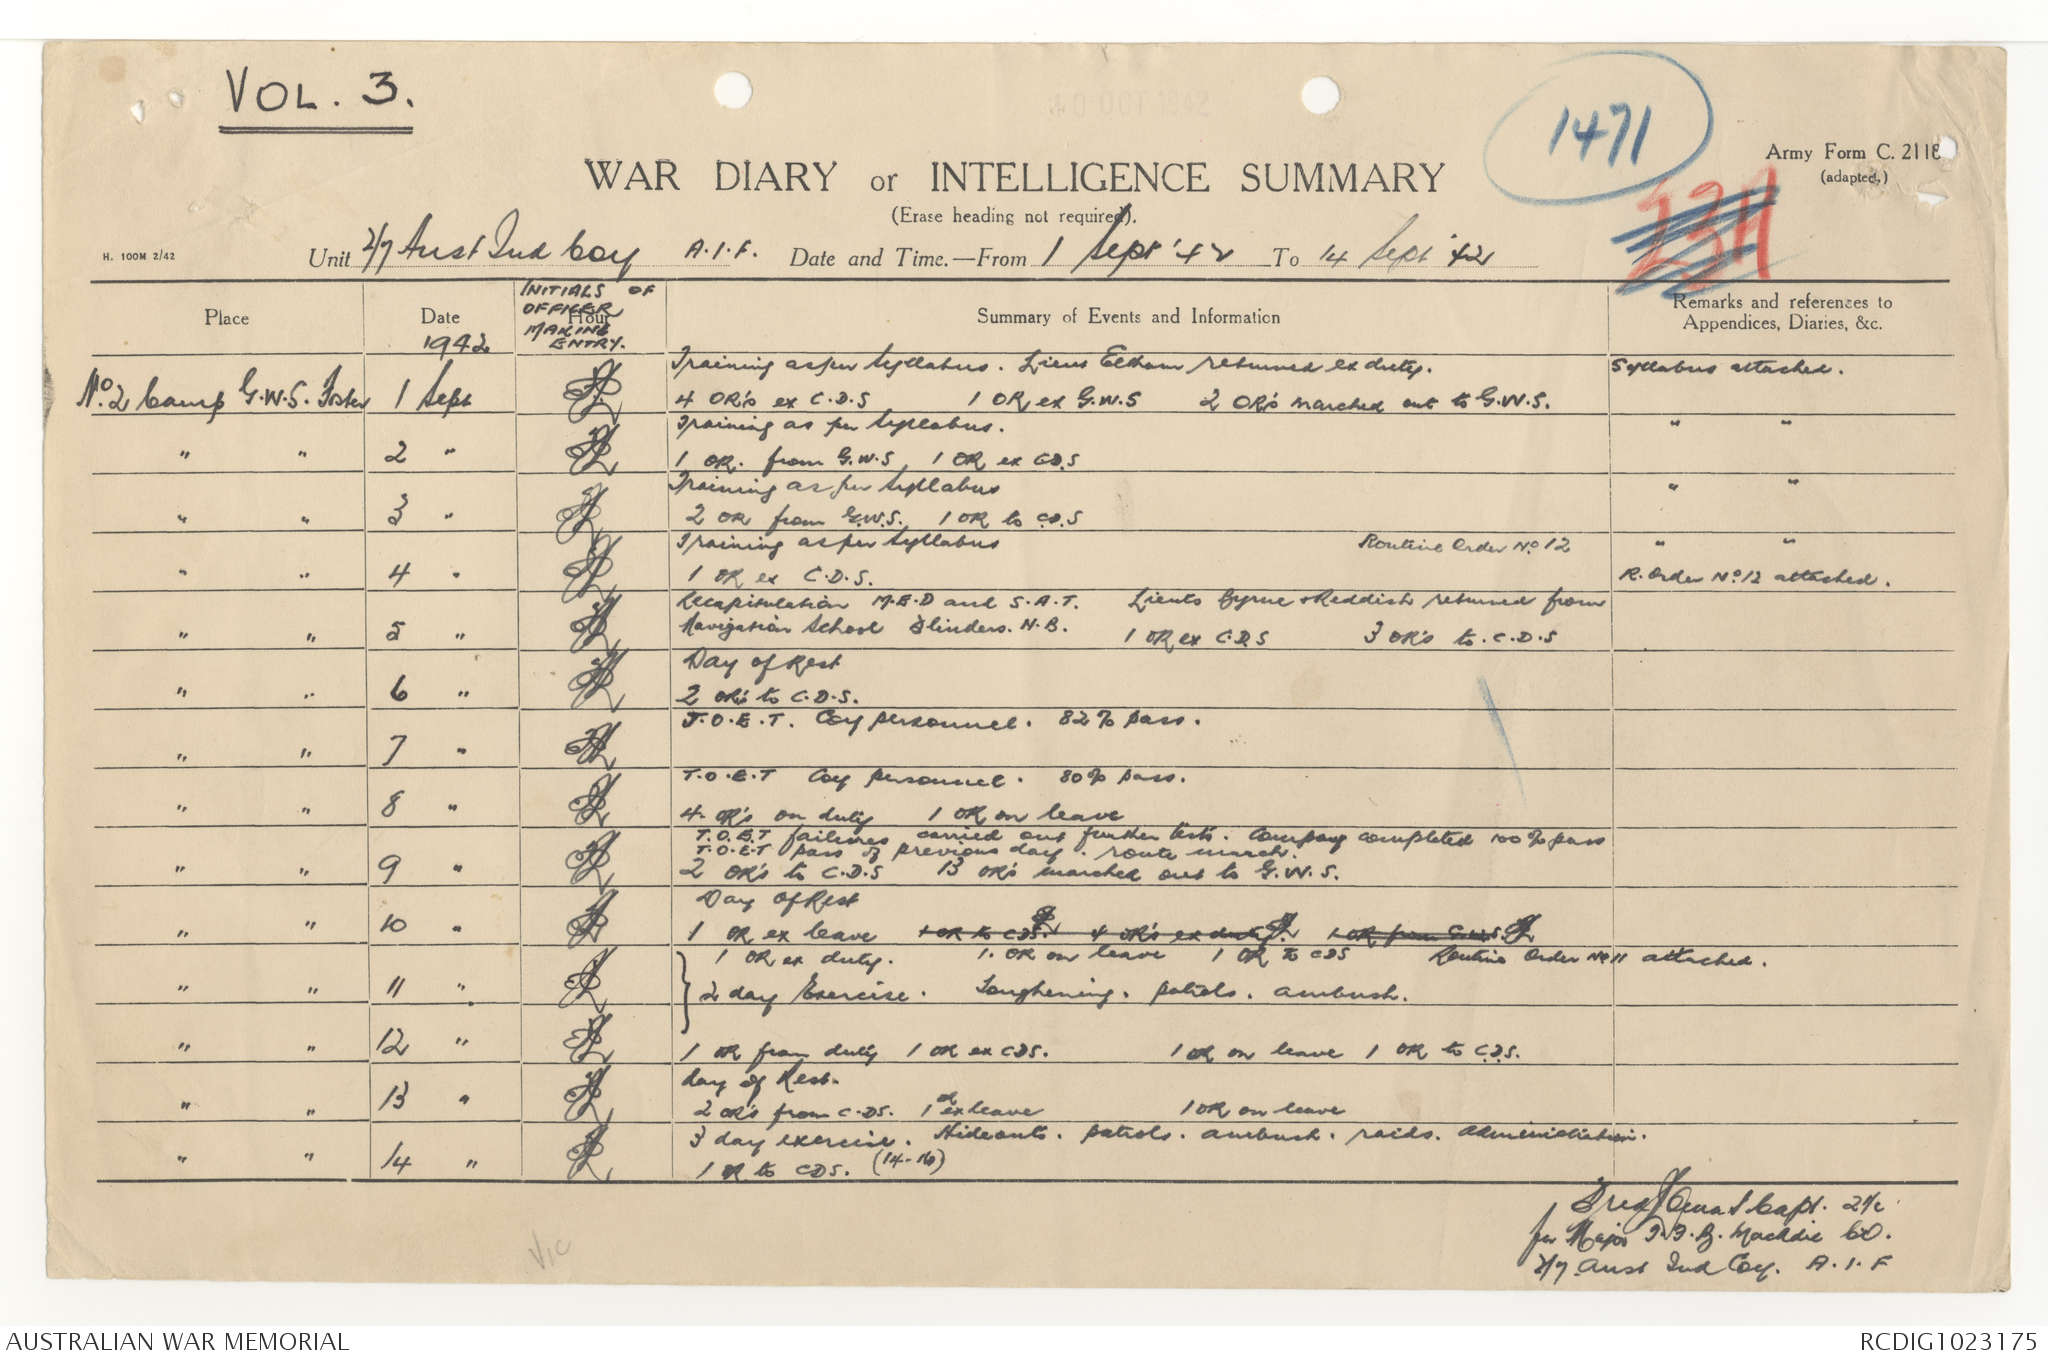 VOL. 3.
1471
Army Form C. 2118
(adapted.)
WAR DIARY or INTELLIGENCE SUMMARY
(Erase heading not required).
H. 100M 2/42
Unit 2/7 Aust Ind Coy A.I.F. Date and Time.—From 1 Sept '42 To 14 Sept '42
Place
Date
1942
Hour
INITIALS OF
OFFICER
MAKING
ENTRY.
Summary of Events and Information
Remarks and references to
Appendices, Diaries, &c.
No. 2 Camp G.W.S. Foster 1 Sept
Training as per Syllabus. Lieut Eltham returned ex duty.
4 OR's ex C.D.S 1 OR ex G.W.S 2 OR's marched out to G.W.S.
Syllabus attached.
" " 2 "
Training as per Syllabus.
1 OR. from G.W.S, 1 OR ex CDS
" "
" " 3 "
Training as per Syllabus
2 OR from G.W.S. 1 OR to C.D.S
" "
" " 4 "
Training as per Syllabus Routine Order No 12
1 OR ex C.D.S.
" "
R. Order No 12 attached.
" " 5 "
Recapitulation M.E.D and S.A.T. Lieuts Byrne & Reddish returned from
Navigation School Flinders. N.B. 1 OR ex C.D.S 3 OR's to. C.D.S
" " 6 "
Day of Rest
2 OR's to C.D.S.
" " 7 "
T.O.E.T. Coy personnel. 82% pass.
" " 8 "
T.O.E.T Coy personnel. 80% pass.
4 OR's on duty 1 OR on leave
" " 9 "
T.O.E.T failures carried out further tests. Company completed 100% pass
T.O.E.T pass of previous day. route march.
2 OR's to C.D.S 13 OR's marched out to G.W.S.
" " 10 "
Day of Rest
1 OR ex leave 1 OR to CDS. 4 OR's ex duty. 1 OR from G.W.S.
" " 11 "
1 OR ex duty. 1. OR on leave 1 OR to CDS Routine Order No 11 attached.
2 day Exercise. Toughening. patrols. ambush.
" " 12 "
1 OR from duty 1 OR ex CDS. 1 OR on leave 1 OR to C.D.S.
" " 13 "
day of Rest.
2 OR's from C.D.S. 1 OR ex leave 1 OR on leave
" " 14 "
3 day exercise. Hideouts. patrols. ambush. raids. administration.
1 OR to CDS. (14-16)
Capt. 2i/c
for Major F.F.B. Mackie CO.
2/7 Aust Ind Coy. A.I.F
Vic
AUSTRALIAN WAR MEMORIAL
RCDIG1023175